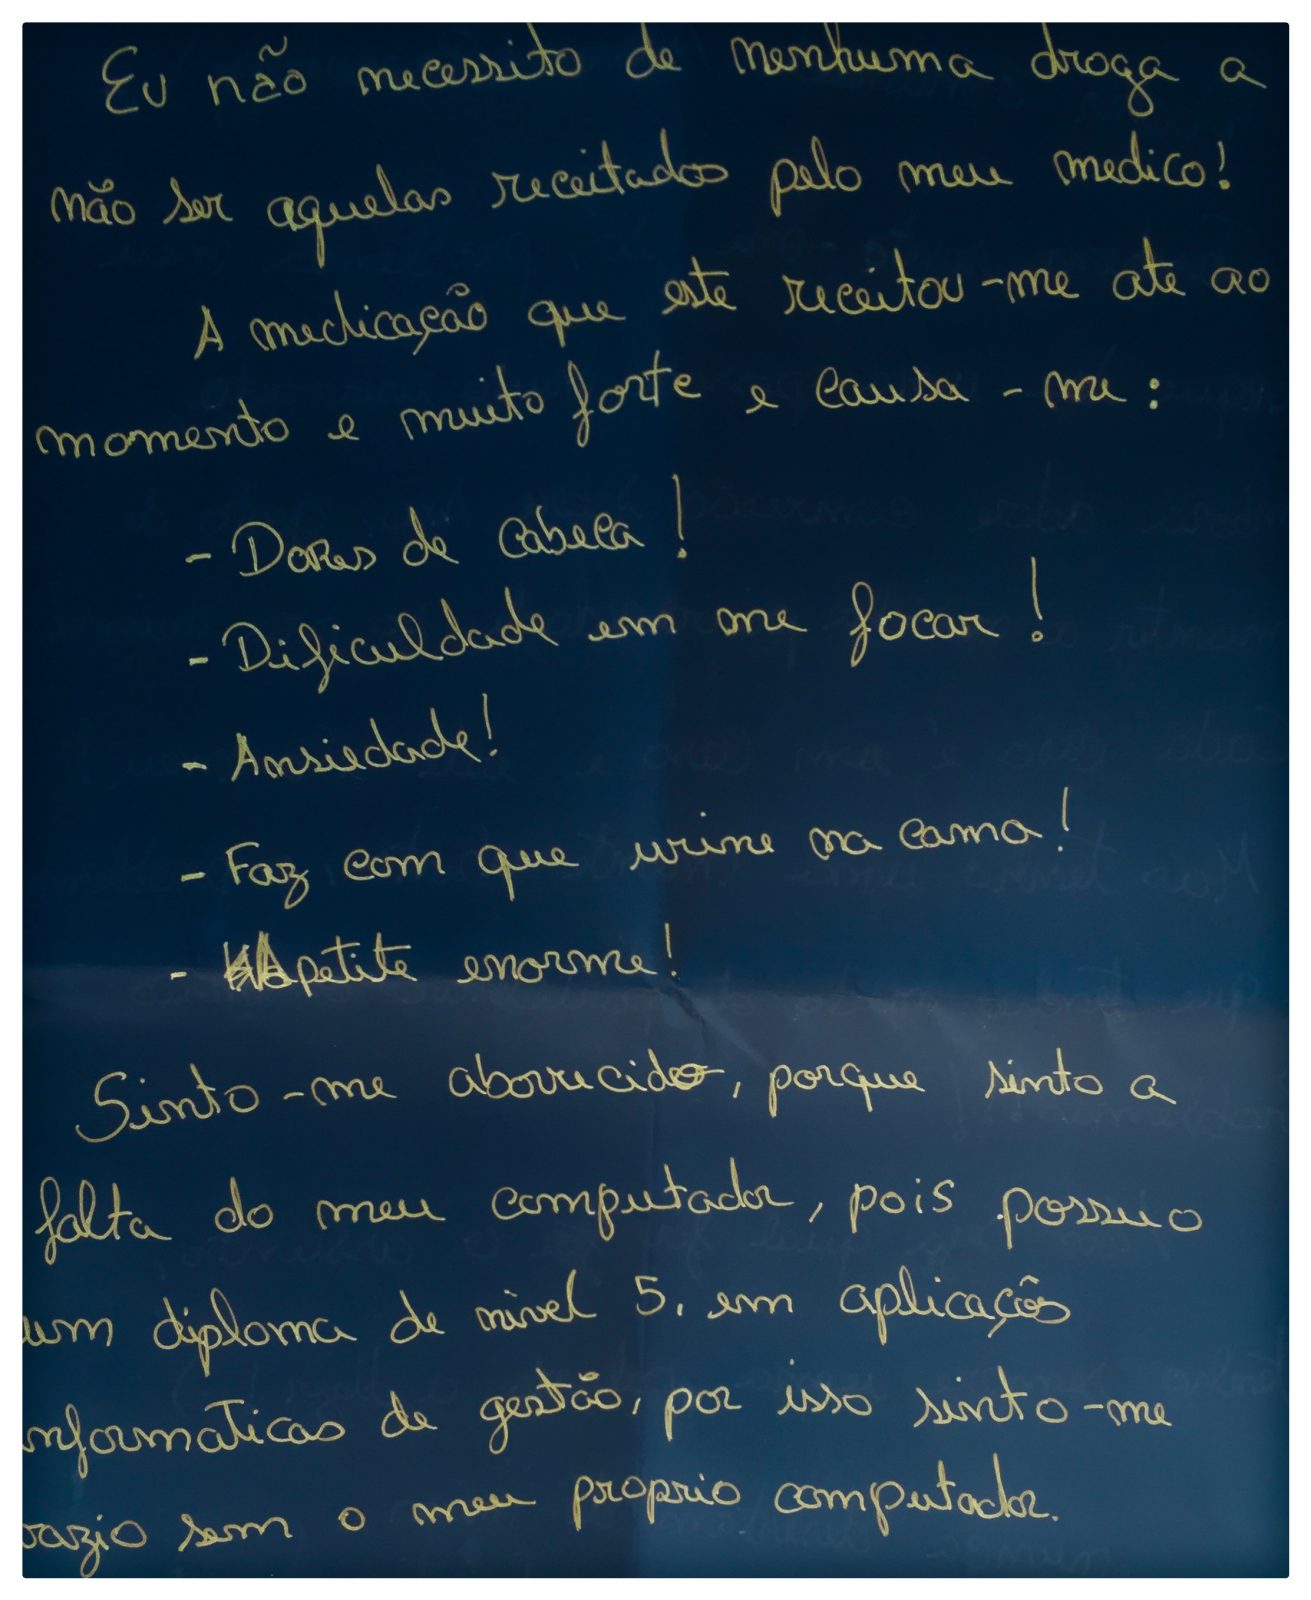 Eu não necessito de nenhuma droga a
não ser aquelas receitados pelo meu medico!
A medicação que este receitou-me ate ao
momento e muito forte e causa-me:
- Dores de cabeca!
- Dificuldade em me focar!
- Ansiedade!
- Faz com que urine na cama!
- Apetite enorme!
Sinto-me aborrecido, porque sinto a
falta do meu computador, pois possuo
um diploma de nivel 5, em aplicações
informaticas de gestão, por isso sinto-me
vazio sem o meu proprio computador.